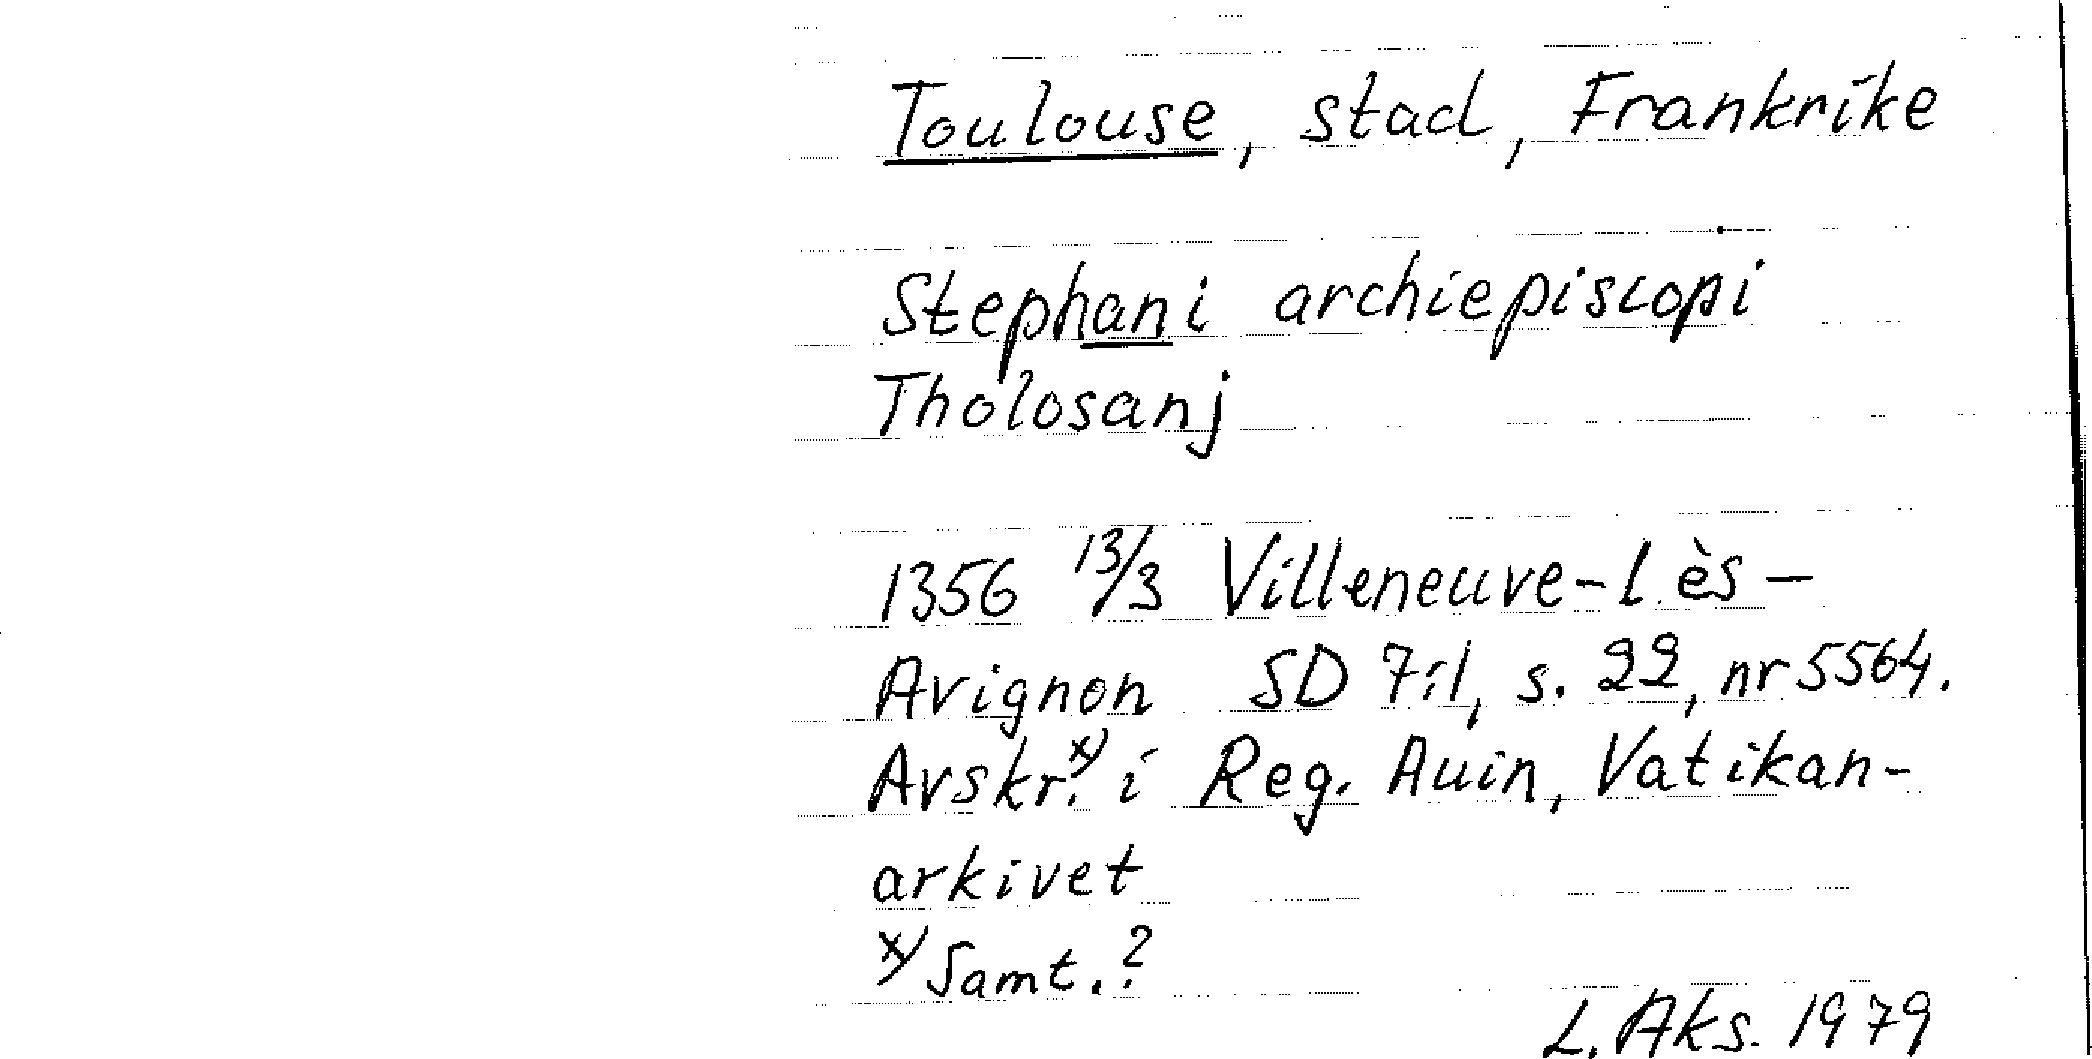 Toulouse, stad, Frankrike
Stephani archiepiscopi
Tholosanj
1356 13/3 Villeneuve-lès-
Avignon SD 7:1, s. 22, nr 5564.
Avskr.x) i Reg. Auin, Vatikan-
arkivet
x) Samt.?
L. Aks. 1979